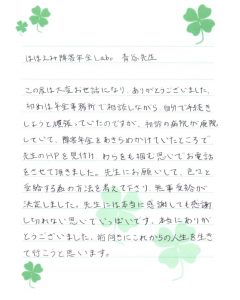 ほほえみ障害年金Labo 青谷先生
この度は大変お世話になり、ありがとうございました。
初めは年金事務所で相談しながら、自分で手続き
しようと頑張っていたのですが、初診の病院が廃院
していて、障害年金をあきらめかけていたところで
先生のHPを見付け、わらをも掴む思いでお電話
をさせて頂きました。先生にお願いして、色々と
受給する為の方法を考えて下さり、無事受給が
決定しました。先生には本当に感謝しても感謝
し切れない思いでいっぱいです。本当にありが
とうございました。前向きにこれからの人生を生き
て行こうと思います。